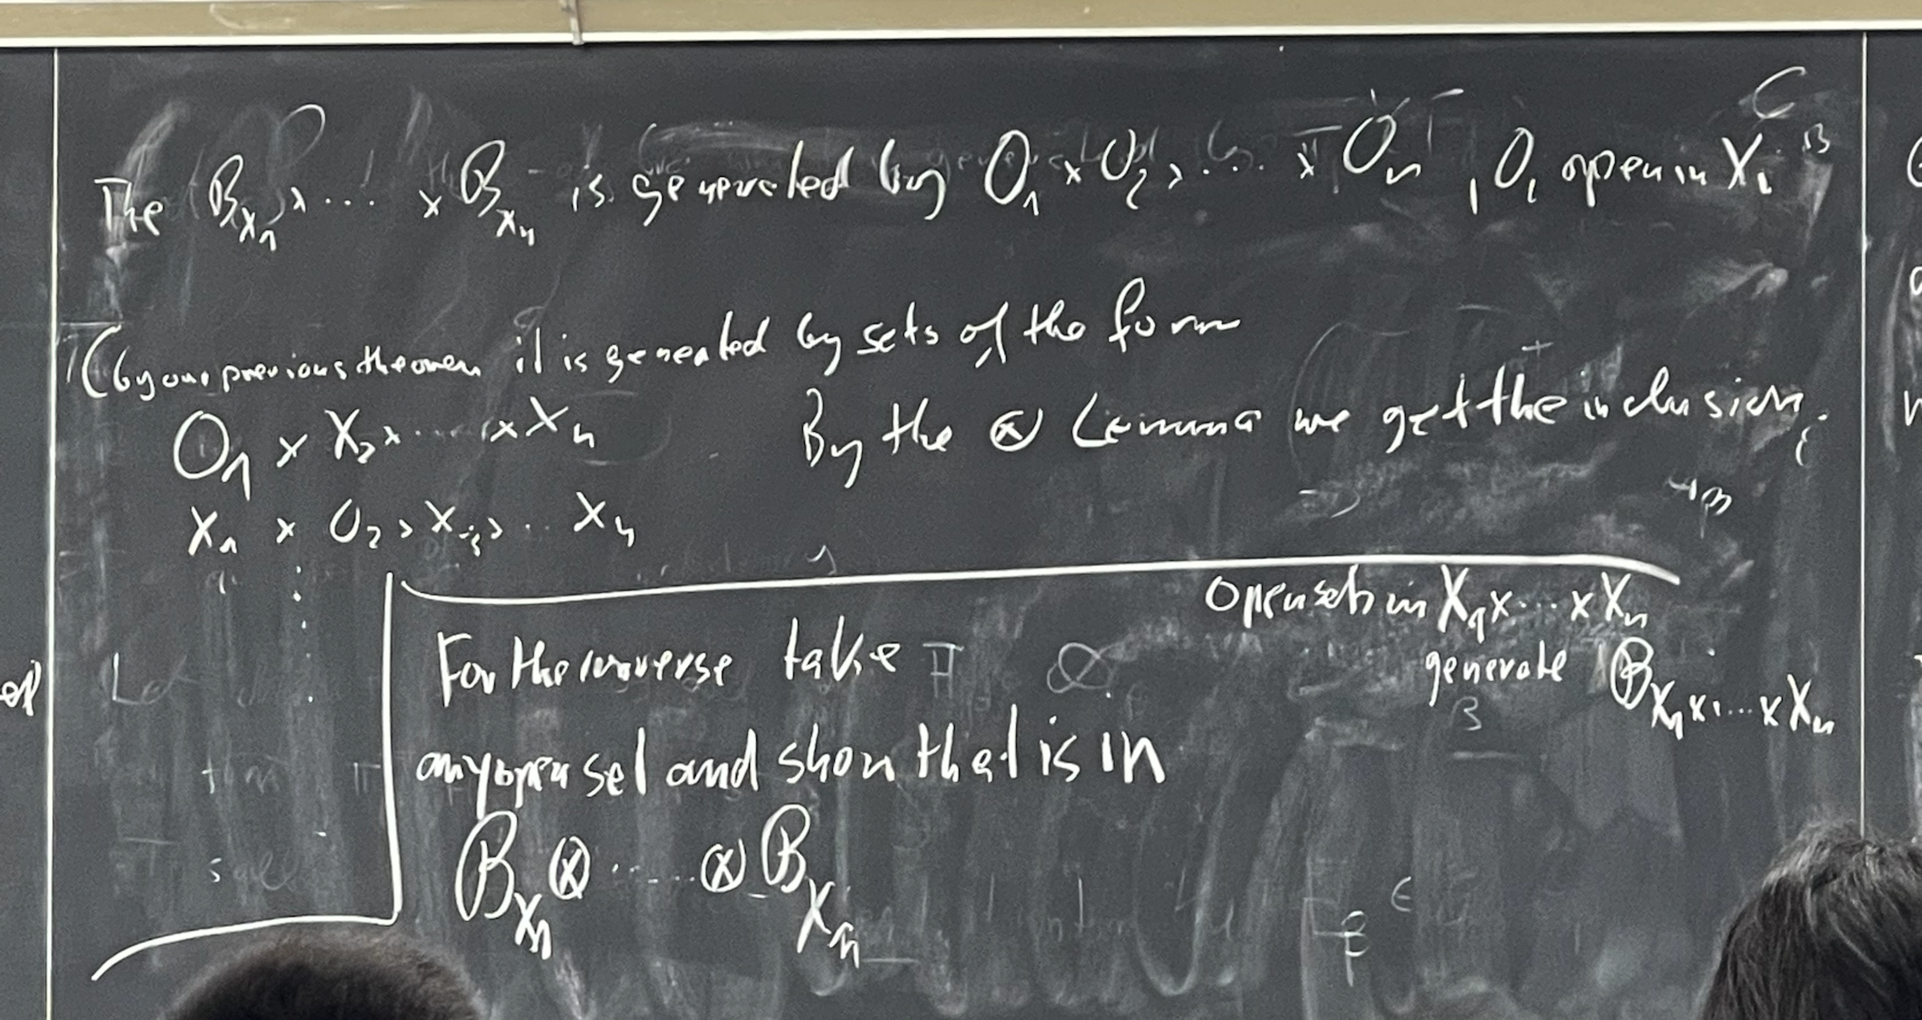 The B_{X_1} × ... × B_{X_n} is generated by O_1 × O_2 × ... × O_n, O_i open in X_i
(by our previous theorem it is generated by sets of the form
O_1 × X_2 × ... × X_n
By the ⊗ Lemma we get the inclusion.
X_1 × O_2 × X_3 × .. X_n
⋮
Open sets in X_1 × ... × X_n
generate B_{X_1 × ... × X_n}
For the inverse take
any open set and show that is in
B_{X_1} ⊗ ... ⊗ B_{X_n}